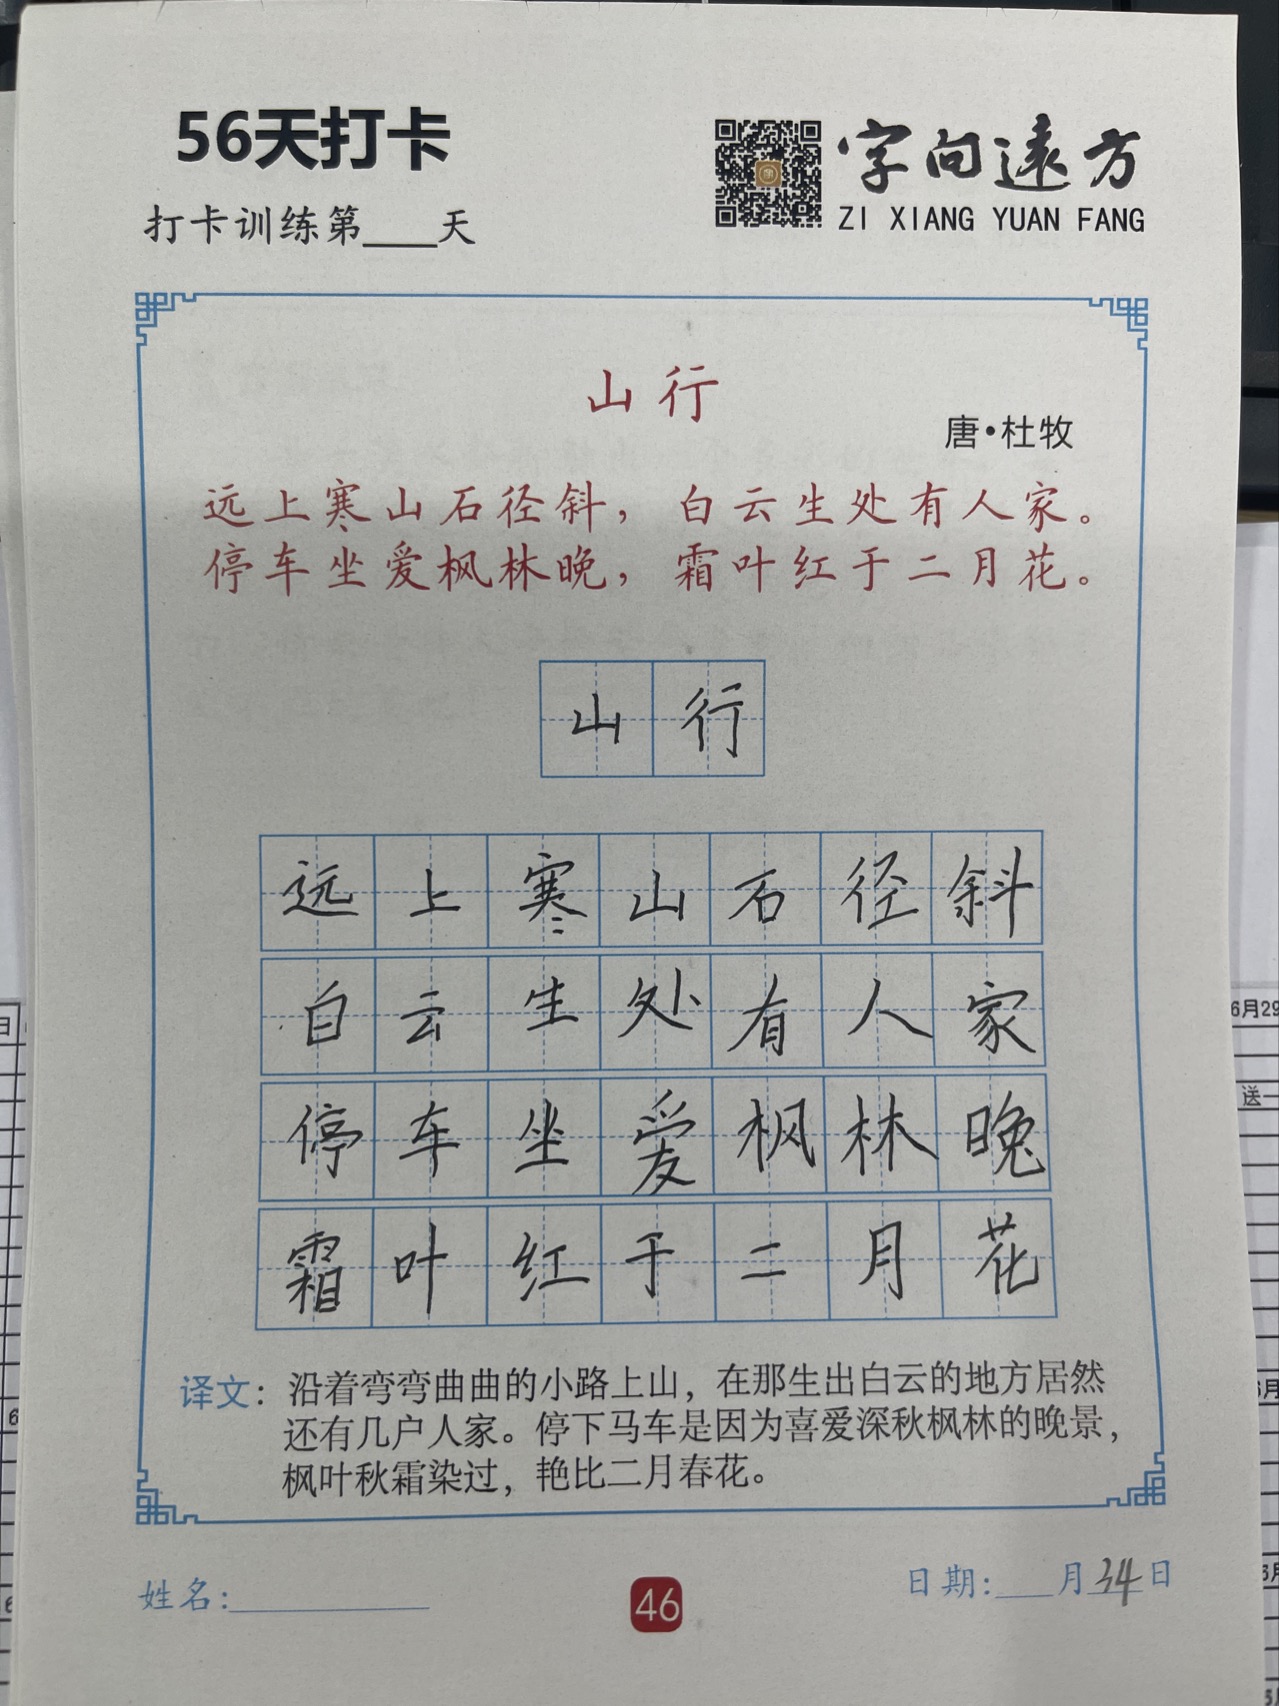 56天打卡
打卡训练第___天
字向遠方
ZI XIANG YUAN FANG
山行
唐·杜牧
远上寒山石径斜，白云生处有人家。
停车坐爱枫林晚，霜叶红于二月花。
山行
远上寒山石径斜
白云生处有人家
停车坐爱枫林晚
霜叶红于二月花
译文：沿着弯弯曲曲的小路上山，在那生出白云的地方居然
还有几户人家。停下马车是因为喜爱深秋枫林的晚景，
枫叶秋霜染过，艳比二月春花。
姓名:
46
日期:___月34日
日
6月29
送一
6